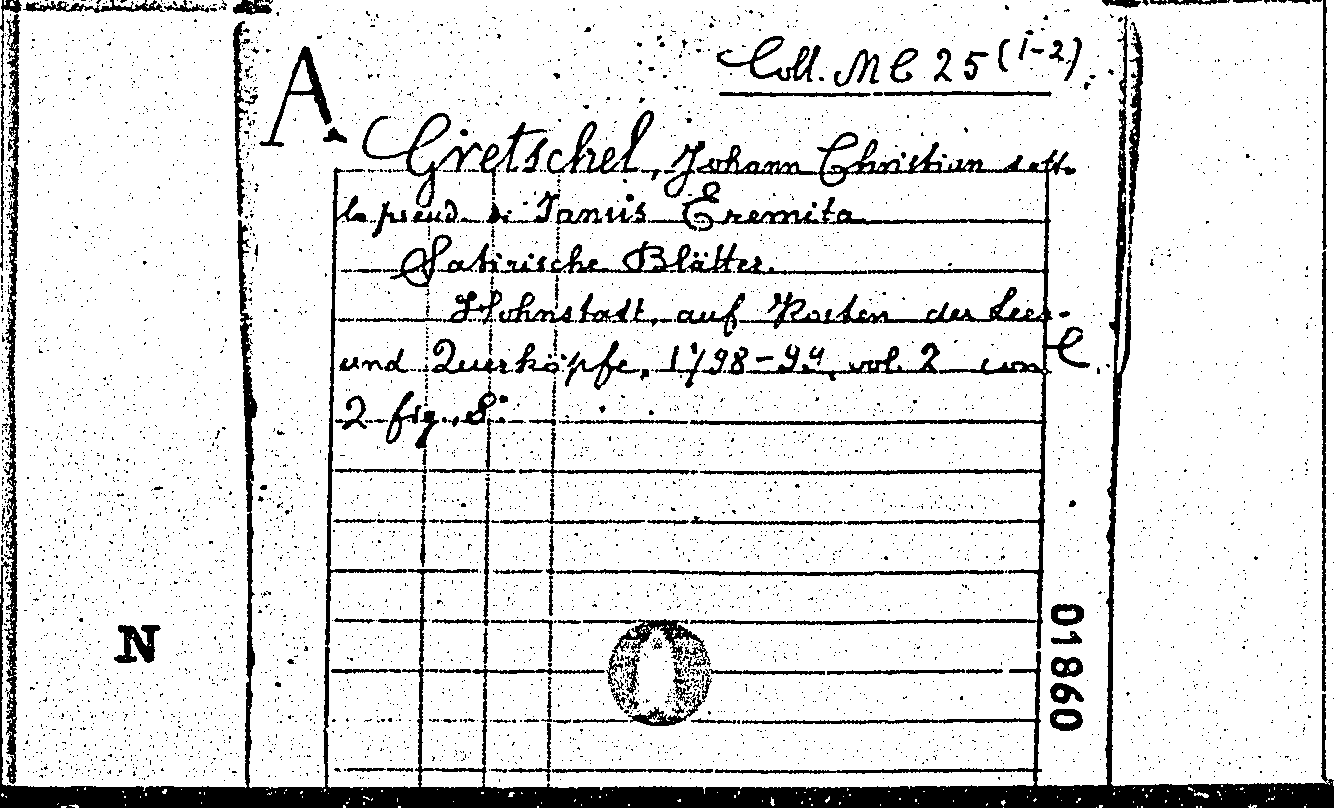 A
Coll. MC 25 (1-2)
Gretschel, Johann Christian sott.
lo pseud. di Janus Eremita
Satirische Blätter.
Hohnstadt, auf Kosten der Leer-
und Querköpfe, 1798-94, vol. 2 con
2 fig., 8.
N
01860